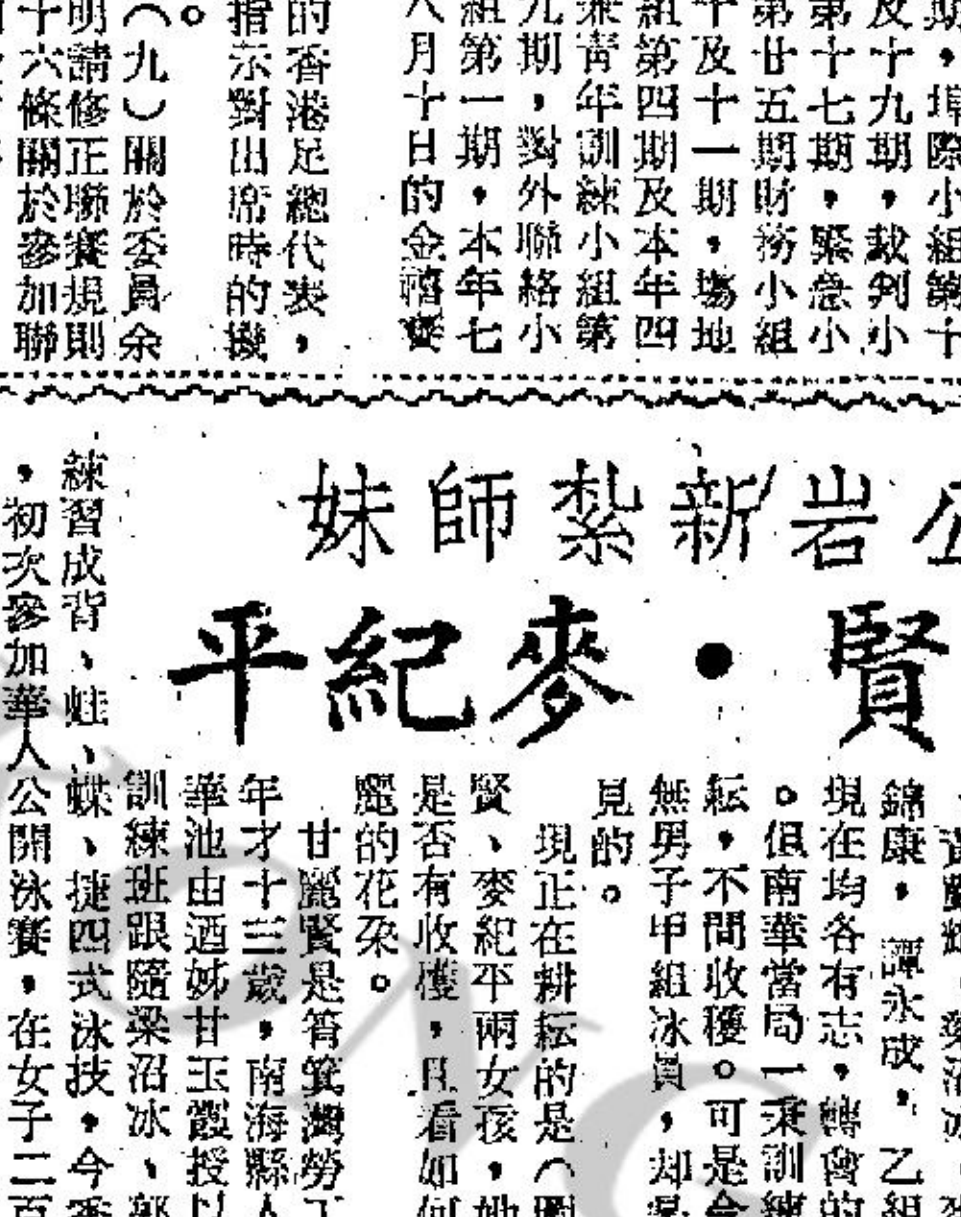 期，埠際小組第十
及十九期，裁判小
第十七期，緊急小
第廿五期財務小組
十及十一期，塲地
組第四期及本年四
兼青年訓練小組第
九期，對外聯絡小
組第一期，本年七
八月十日的金禧賽
的香港足總代表，
指示對出席時的機
。
（九）關於委員余
明請修正聯賽規則
十六條關於參加聯
岩新紮師妹
賢・麥紀平
錦康，譚永成，乙組
現在均各有志，轉會的
。但南華當局一秉訓練
耘，不問收穫。可是今
無男子甲組泳員，却是
見的。
現正在耕耘的是（
賢、麥紀平兩女孩，她
是否有收穫，且看如何
麗的花朶。
甘麗賢是筲箕灣勞工
年才十三歲，南海縣人
華池由迺姊甘玉霞授以
訓練班跟隨梁沼冰、郭
練習成背、蛙、蝶、捷四式泳技，今
，初次參加華人公開泳賽，在女子二百